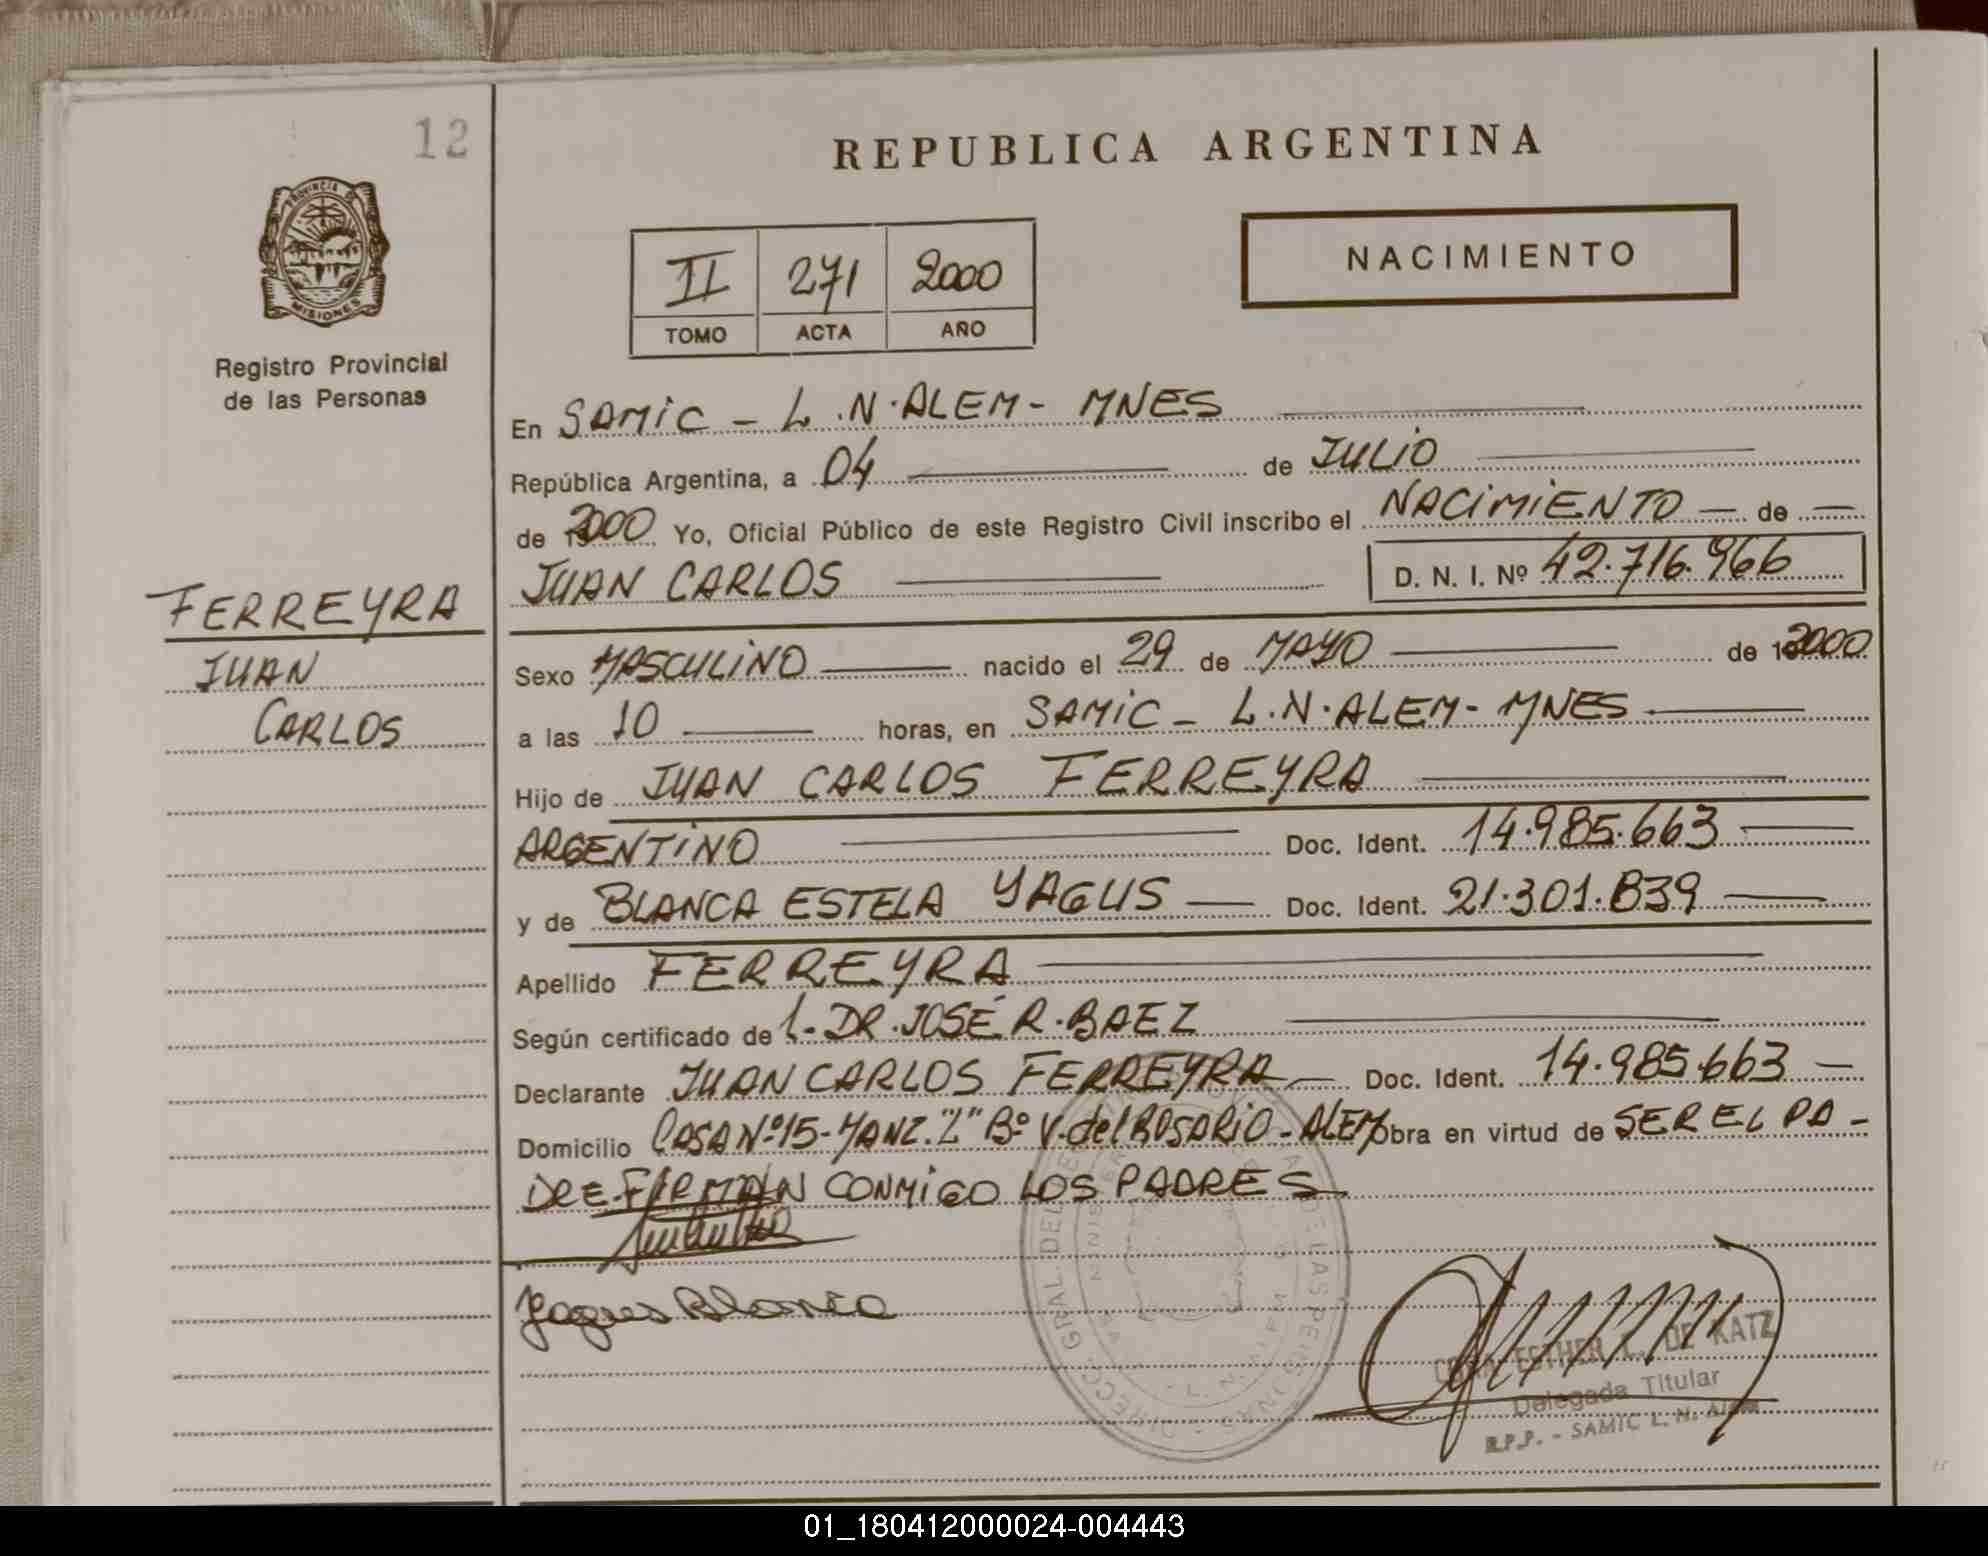 12
REPUBLICA ARGENTINA
PROVINCIA DE
MISIONES
Registro Provincial
de las Personas
II 271 2000
TOMO ACTA AÑO
NACIMIENTO
En SAMIC - L.N.ALEM- MNES
República Argentina, a 04 de JULIO
de 2000 Yo, Oficial Público de este Registro Civil inscribo el NACIMIENTO — de —
JUAN CARLOS D. N. I. Nº 42.716.966
FERREYRA
JUAN
CARLOS
Sexo MASCULINO nacido el 29 de MAYO de 2000
a las 10 horas, en SAMIC - L.N.ALEM- MNES
Hijo de JUAN CARLOS FERREYRA
ARGENTINO Doc. Ident. 14.985.663
y de BLANCA ESTELA YAGUS Doc. Ident. 21.301.839
Apellido FERREYRA
Según certificado de l- DR.JOSÉ R.BAEZ
Declarante JUAN CARLOS FERREYRA Doc. Ident. 14.985.663
Domicilio CASA Nº15-MANZ."L" Bº V.del ROSARIO-ALEM Obra en virtud de SER EL PA-
DRE.FIRMAN CONMIGO LOS PADRES
Yagues Blanca
ESTHER L. DE KATZ
Delegada Titular
R.P.P. - SAMIC L. N. Alem
01_180412000024-004443